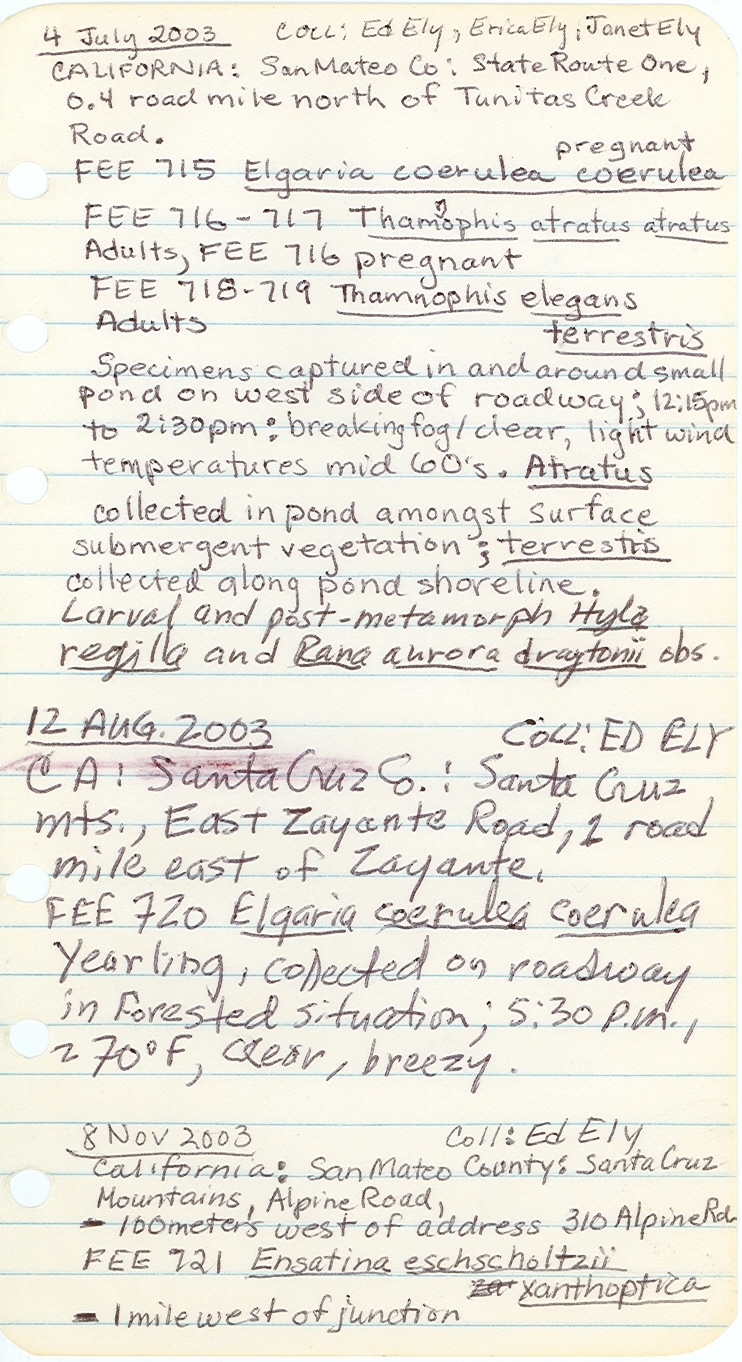 4 July 2003 Coll: Ed Ely, Erica Ely, Janet Ely
CALIFORNIA: San Mateo Co: State Route One,
0.4 road mile north of Tunitas Creek
Road.
pregnant
FEE 715 Elgaria coerulea coerulea
FEE 716-717 Thamnophis atratus atratus
Adults, FEE 716 pregnant
FEE 718-719 Thamnophis elegans
Adults terrestris
Specimens captured in and around small
pond on west side of roadway; 12:15pm
to 2:30pm: breaking fog/clear, light wind
temperatures mid 60's. Atratus
collected in pond amongst surface
submergent vegetation; terrestris
collected along pond shoreline.
Larval and post-metamorph Hyla
regilla and Rana aurora draytonii obs.
12 AUG. 2003 Coll: ED ELY
CA: Santa Cruz Co.: Santa Cruz
mts., East Zayante Road, 1 road
mile east of Zayante.
FEE 720 Elgaria coerulea coerulea
Yearling, collected on roadway
in Forested situation; 5:30 p.m.,
~70°F, clear, breezy.
8 Nov 2003 Coll: Ed Ely
California: San Mateo County: Santa Cruz
Mountains, Alpine Road,
- 100 meters west of address 310 Alpine Rd
FEE 721 Ensatina eschscholtzii
xanthoptica
- 1 mile west of junction